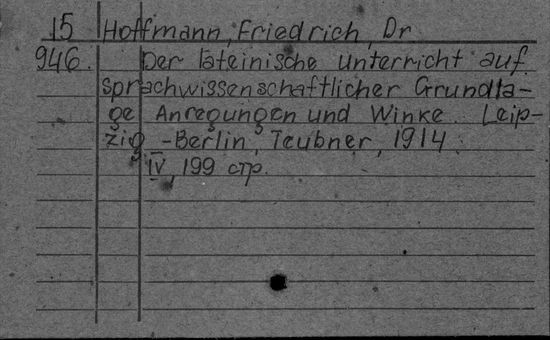 15 Hoffmann, Friedrich, Dr
946. Der lateinische unterricht auf
sprachwissenschaftlicher Grundla-
ge Anregungen und Winke. Leip-
zig - Berlin, Teubner, 1914.
IV, 199 стр.